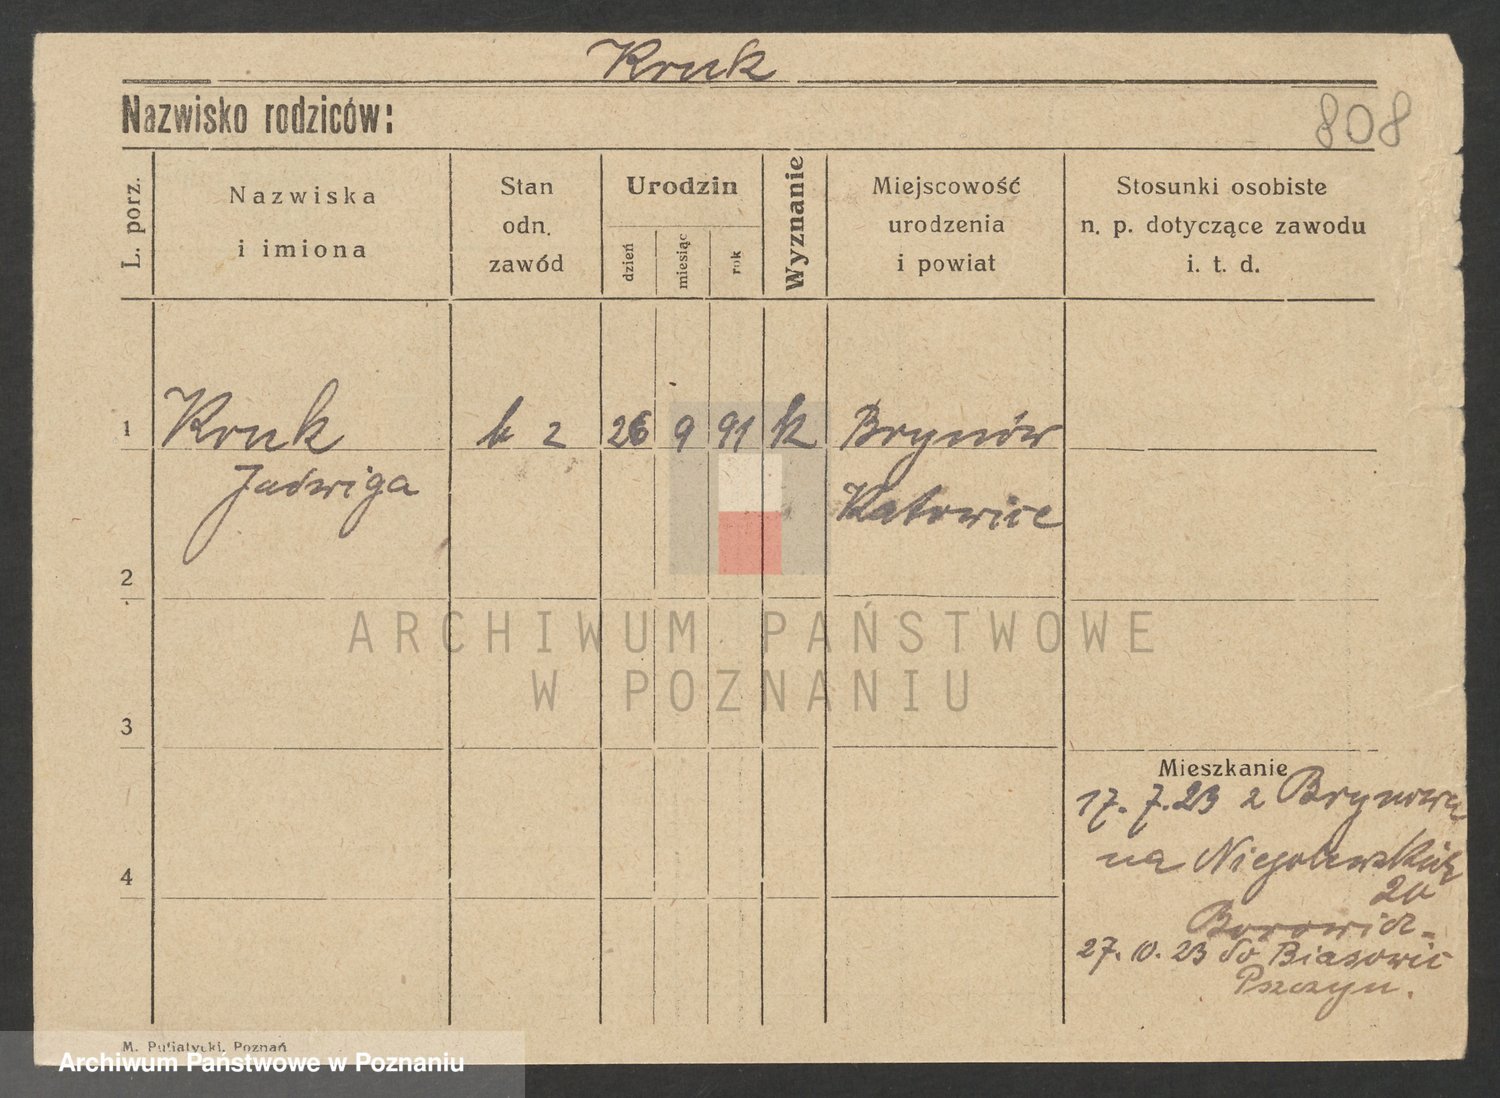 Kruk
Nazwisko rodziców:
808
L. porz.
Nazwiska
i imiona
Stan
odn.
zawód
Urodzin
dzień
miesiąc
rok
Wyznanie
Miejscowość
urodzenia
i powiat
Stosunki osobiste
n. p. dotyczące zawodu
i. t. d.
1 Kruk 26 9 91 k Brynów
Jadwiga Katowice
2
ARCHIWUM PAŃSTWOWE
W POZNANIU
3
Mieszkanie
17. 7. 23 z Brynowa
na
4
20
27. 10. 23 do Biasowic
Pszczyn.
M. Pujiatycki, Poznań
Archiwum Państwowe w Poznaniu